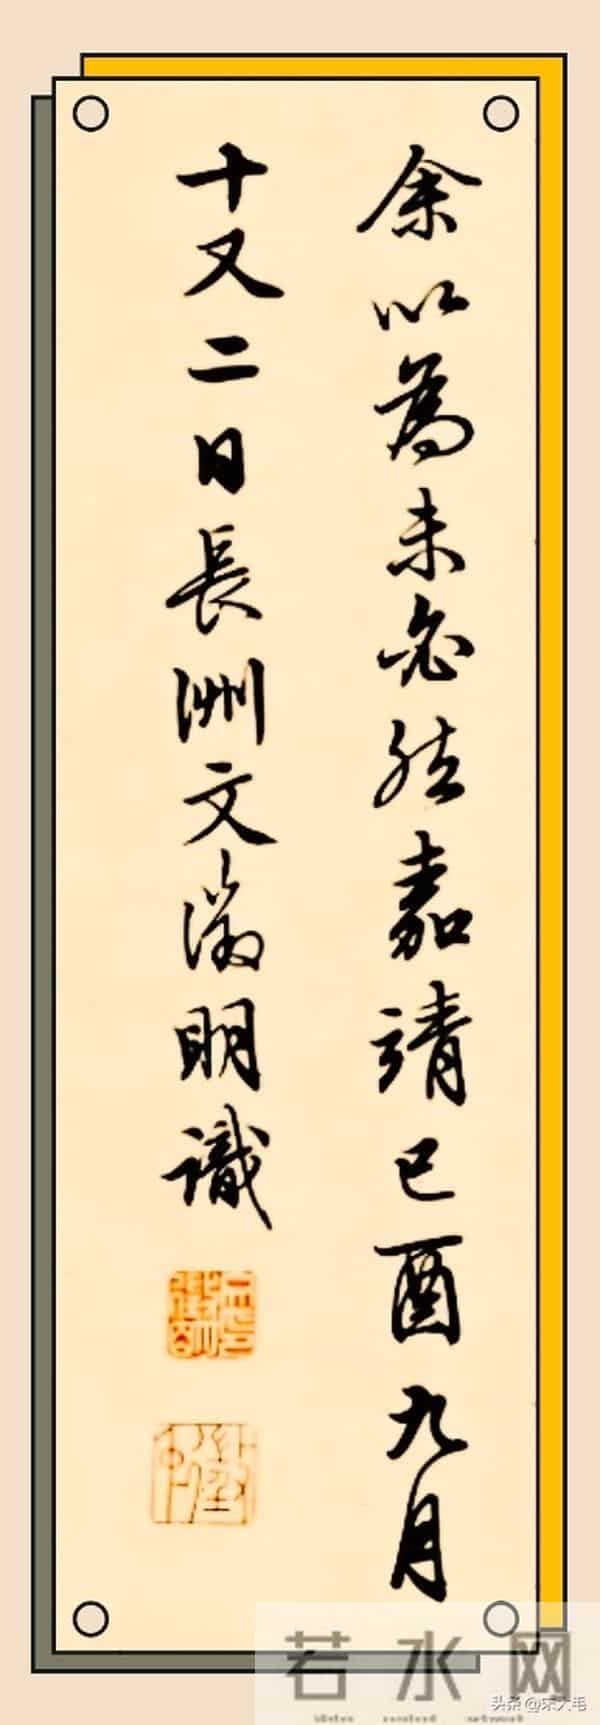 余以為未必然嘉靖己酉九月
十又二日長洲文徵明識
若水网
头条@宋大毛